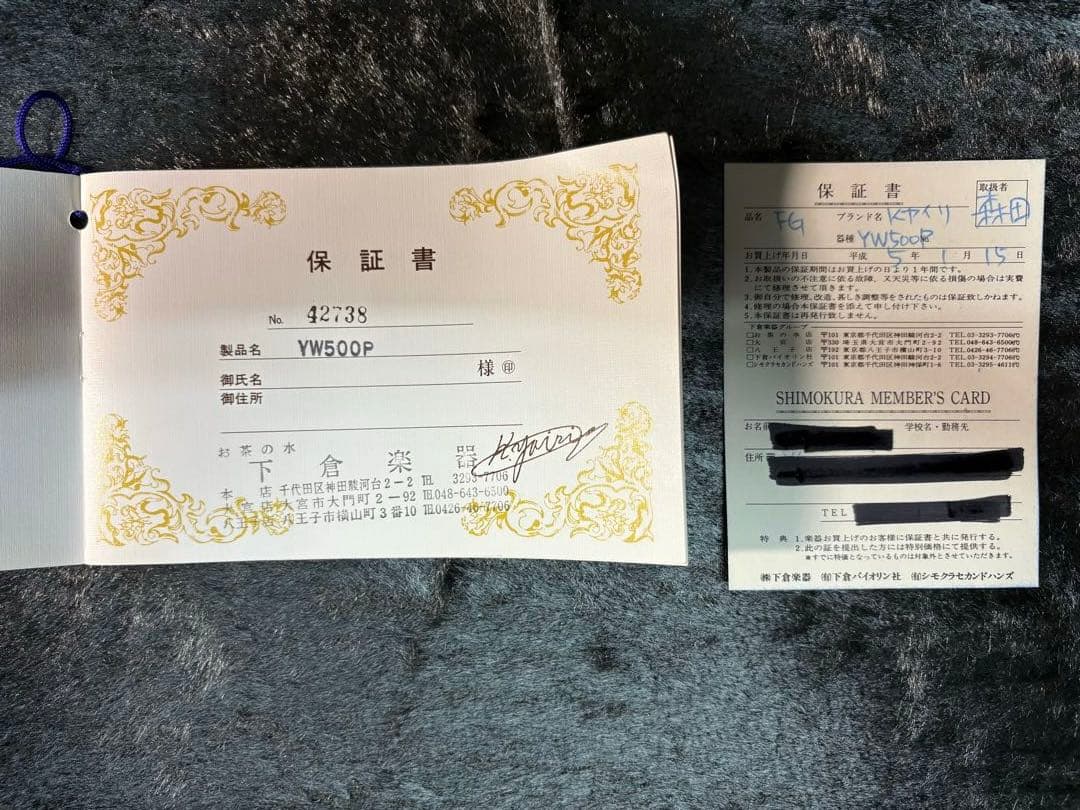 保証書
No. 42738
製品名 YW500P
御氏名 様 ㊞
御住所
お茶の水
下倉楽器
K.Yairi
本店 千代田区神田駿河台2-2 TEL 3293-7706
大宮店 大宮市大門町2-92 TEL048-643-6500
八王子店 八王子市横山町3番10 TEL0426-46-7706
保証書
取扱者
森田
品名 FG ブランド名 Kヤイリ
器種 YW500P
お買上げ年月日 平成 5 年 1 月 15 日
1.本製品の保証期間はお買上げの日より1年間です。
2.お取扱いの不注意に依る故障、又天災等に依る損傷の場合は実費
にて修理させて頂きます。
3.御自分で修理、改造、甚しき調整等をされたものは保証致しかねます。
4.修理の場合本保証書を添えて申し付け下さい。
5.本保証書は再発行致しません。
下倉楽器グループ
□お茶の水店 〒101 東京都千代田区神田駿河台2-2 TEL.03-3293-7706代
□大宮店 〒330 埼玉県大宮市大門町2-92 TEL.048-643-6500代
□八王子店 〒192 東京都八王子市横山町3-10 TEL.0426-46-7706代
□下倉バイオリン社 〒101 東京都千代田区神田駿河台2-2 TEL.03-3294-7706代
□シモクラセカンドハンズ 〒101 東京都千代田区神田神保町1-6 TEL.03-3295-4611代
SHIMOKURA MEMBER'S CARD
お名前 学校名・勤務先
住所
TEL
特典 1.楽器お買上げのお客様に保証書と共に発行する。
2.此の証を提出した方には特別価格にて提供する。
※すでに特価となっているものは対象外とさせていただきます。
㈱下倉楽器 ㈲下倉バイオリン社 ㈲シモクラセカンドハンズ